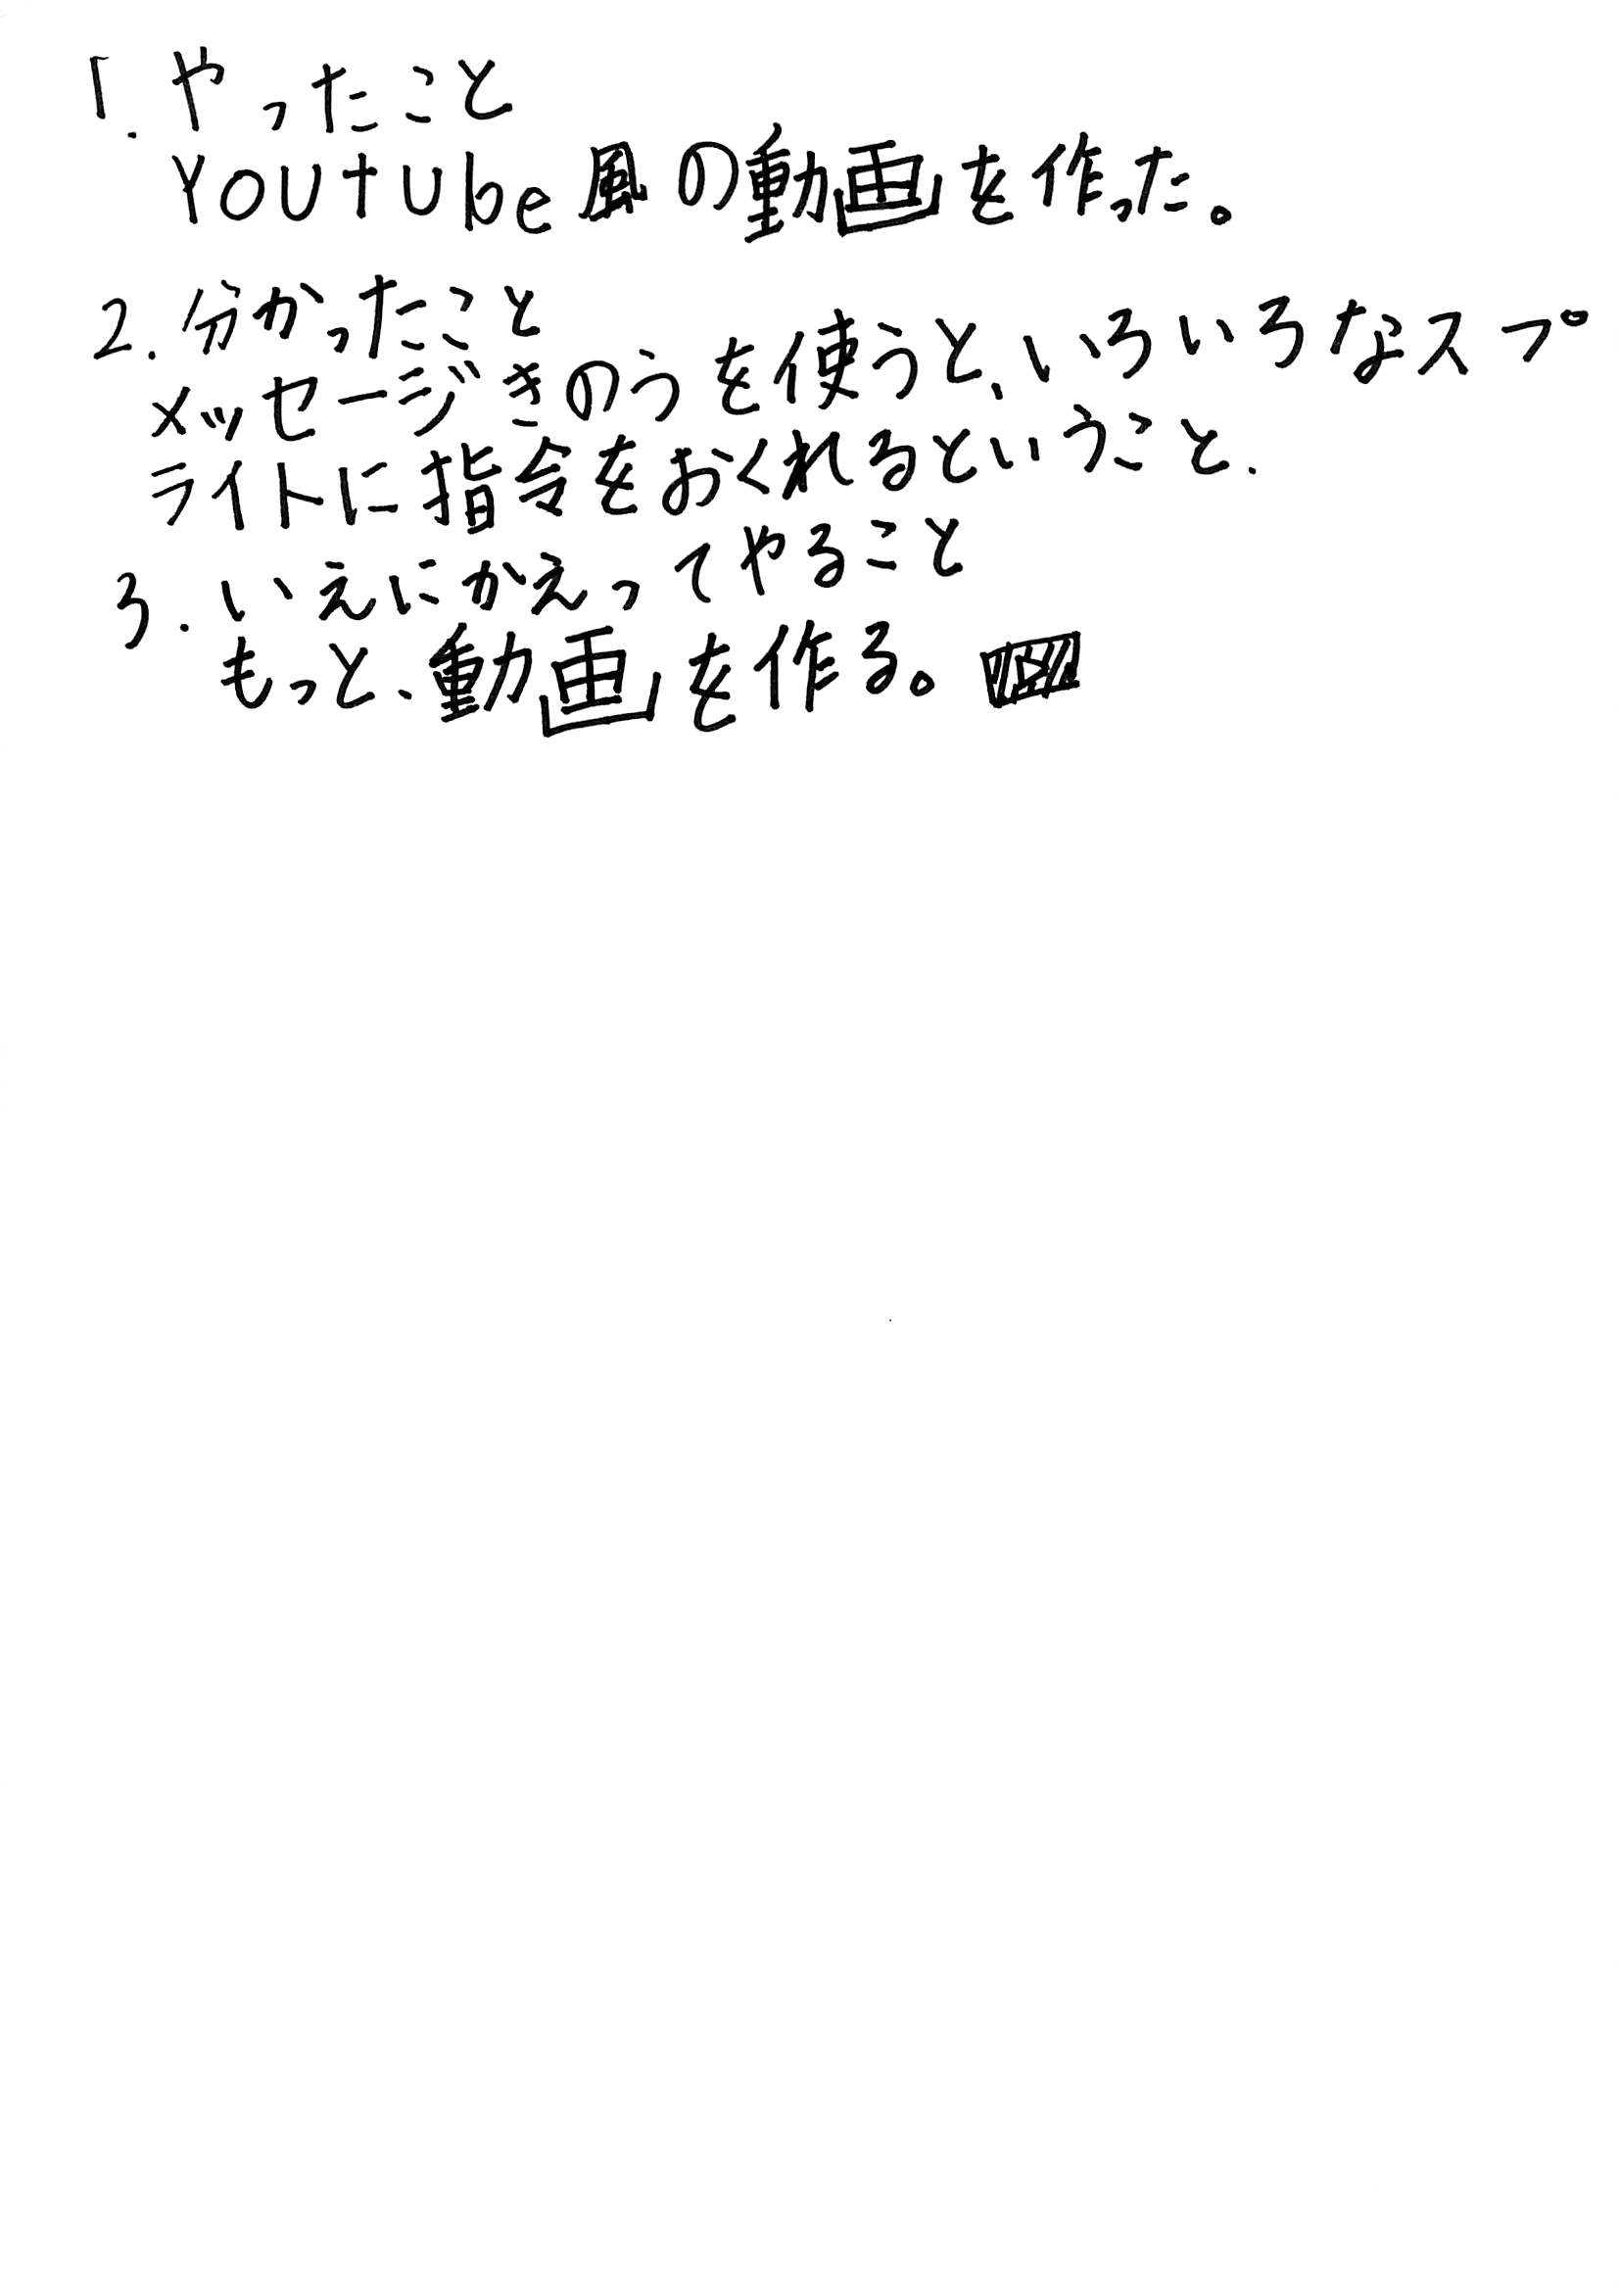 1. やったこと
Youtube風の動画を作った。
2. 分かったこと
メッセージきのうを使うと、いろいろなスプ
ライトに指令をおくれるということ.
3. いえにかえってやること
もっと、動画を作る。